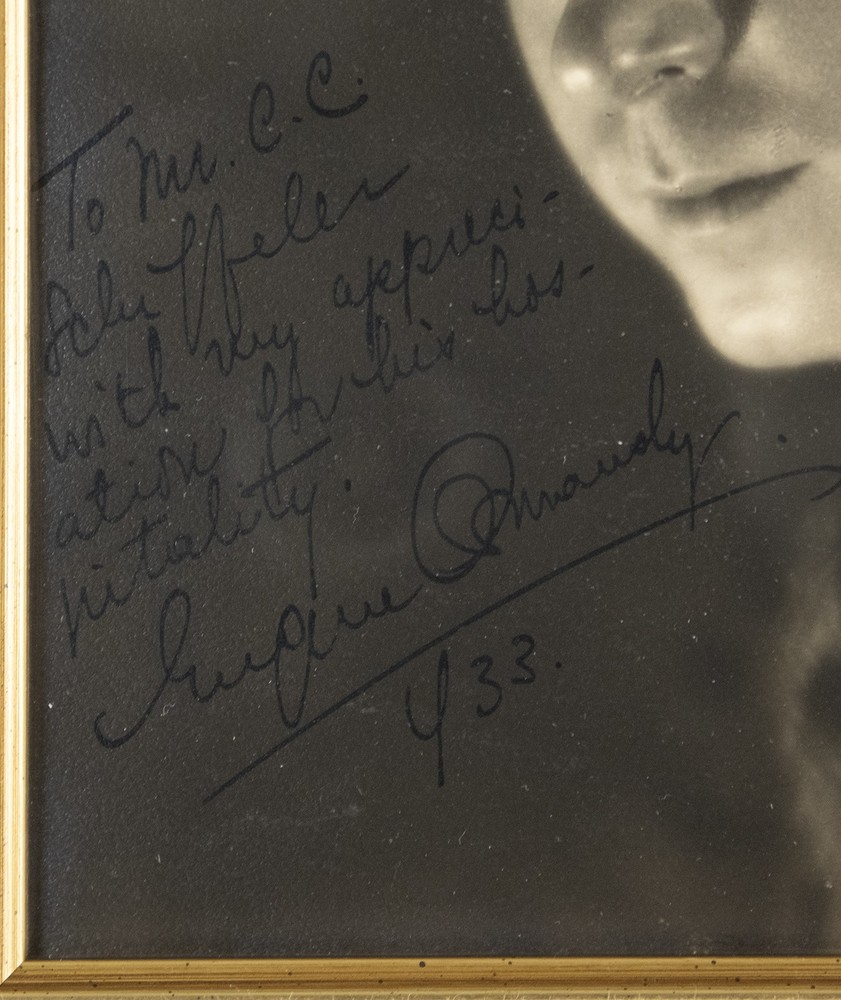 To Mr. C. C.
Schuffeler
with my appreci-
ation for his hos-
pitality.
Eugene Ormandy.
933.